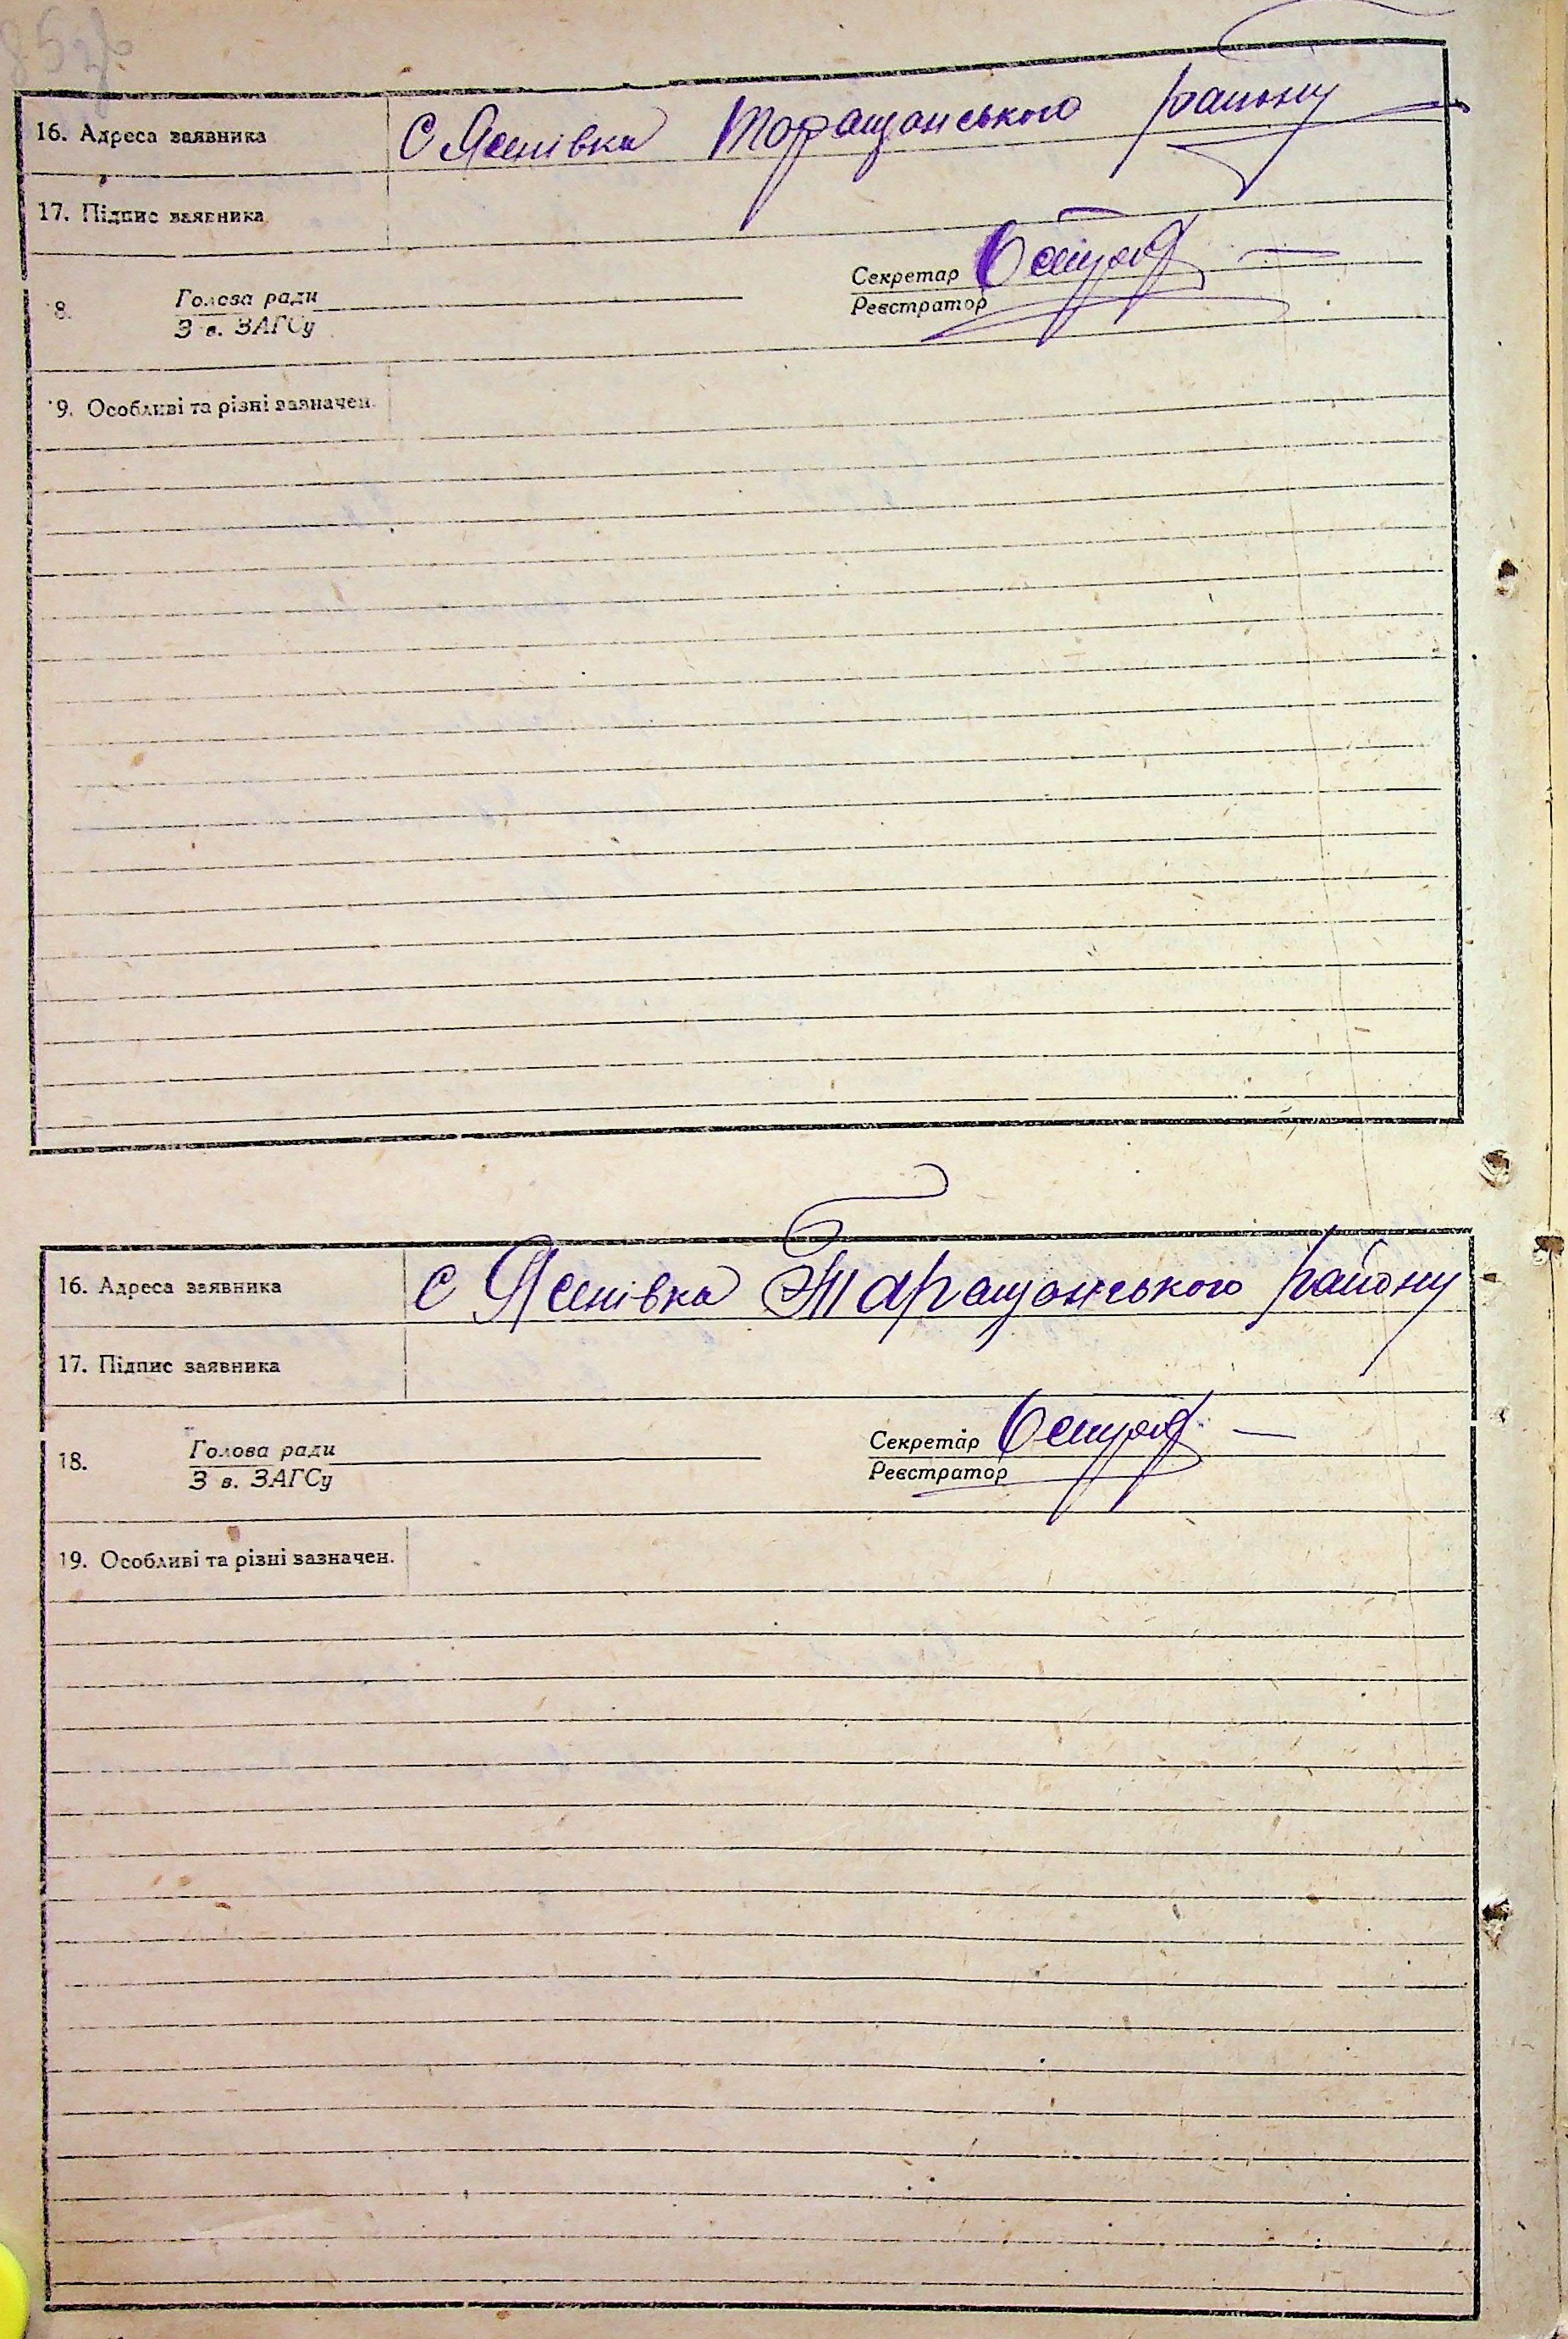 16. Адреса заявника С Ясенівка Таращанського району
17. Підпис заявника
18. Голова ради Секретар
З в. ЗАГСу Реєстратор
19. Особливі та різні зазначен.
16. Адреса заявника с Ясенівка Таращанського району
17. Підпис заявника
18. Голова ради Секретар
З в. ЗАГСу Реєстратор
19. Особливі та різні зазначен.